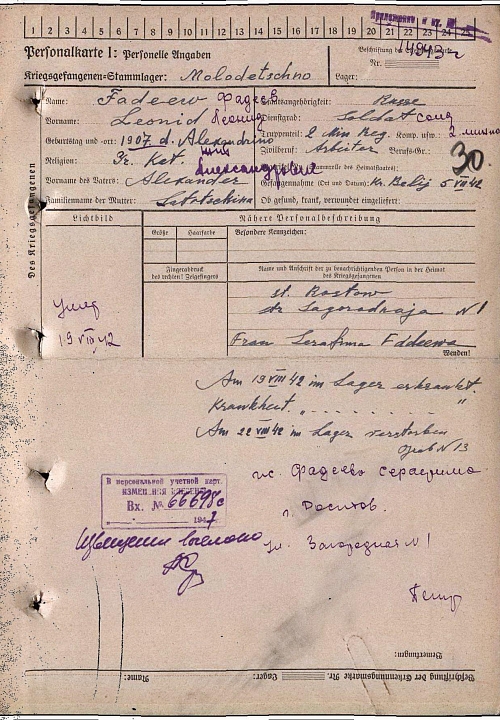 1 2 3 4 5 6 7 8 9 10 11 12 13 14 15 16 17 18 19 20 21 22 23 24 25
Personalkarte I: Personelle Angaben
Kriegsgefangenen-Stammlager: Molodetschno
Beschriftung der
Nr.
Lager:
Des Kriegsgefangenen
Name: Fadeew Фадеев
Staatsangehörigkeit: Russe
Vorname: Leonid Леонид
Dienstgrad: Soldat солд
Geburtstag und -ort: 1907 d. Alexandrino
Truppenteil: 2 Min Reg. Komp. usw.:
Religion: Gr. Kat.
Zivilberuf: Arbeiter Berufs-Gr.:
30
Александрович
Vorname des Vaters: Alexander
Gefangennahme (Ort und Datum): Kr. Belij 5 VII 42
Familienname der Mutter:
Ob gefund, krank, verwundet eingeliefert:
Lichtbild
Nähere Personalbeschreibung
Größe
Haarfarbe
Besondere Kennzeichen:
Fingerabdruck
des rechten Zeigefingers
Name und Anschrift der zu benachrichtigenden Person in der Heimat
des Kriegsgefangenen
st. Rostow
str Sagorodnaja N 1
Frau Serafima Fadeewa
Wenden!
Умер
19 VIII 42
Am 19 VIII 42 im Lager erkrankt.
Krankheit
Am 22 VIII 42 im Lager verstorben
Grab N 13
ж. Фадеева Серафима
г. Ростов.
ул. Загородная N 1
В персональной учетной карт.
Вх. № 66698с
1947
Bemerkungen:
Name:
Lager:
Beschriftung der Erkennungsmarke Nr.